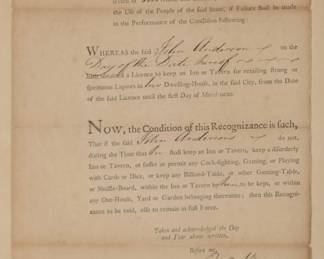 the Use of the People of the said State, if Failure shall be made
in the Performance of the Condition following:
WHEREAS the said John Anderson on the
Day of the Date hereof
hath obtained a Licence to keep an Inn or Tavern for retailing strong or
spirituous Liquors in his Dwelling-House, in the said City, from the Date
of the said Licence until the first Day of March next.
NOW, the Condition of this Recognizance is such,
That if the said John Anderson do not,
during the Time that he shall keep an Inn or Tavern, keep a disorderly
Inn or Tavern, or suffer or permit any Cock-fighting, Gaming, or Playing
with Cards or Dice, or keep any Billiard-Table, or other Gaming-Table,
or Shuffle-Board, within the Inn or Tavern by him to be kept, or within
any Out-House, Yard or Garden belonging thereunto; then this Recogni-
zance to be void, else to remain in full Force.
Taken and acknowledged the Day
and Year above written,
Before me,